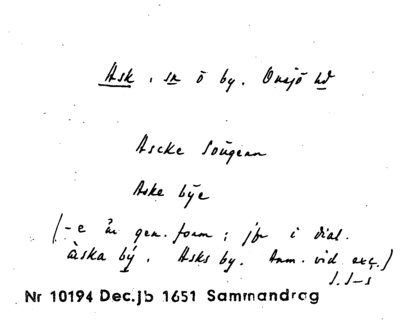 Ask, sn o by. Onsjö hd
Ascke Soûgenn
Aske bÿe
(-e är gen. form; jfr i dial.
àska bý. Asks by. Anm. vid exc.)
J.S-s
Nr 10194 Dec.jb 1651 Sammandrag